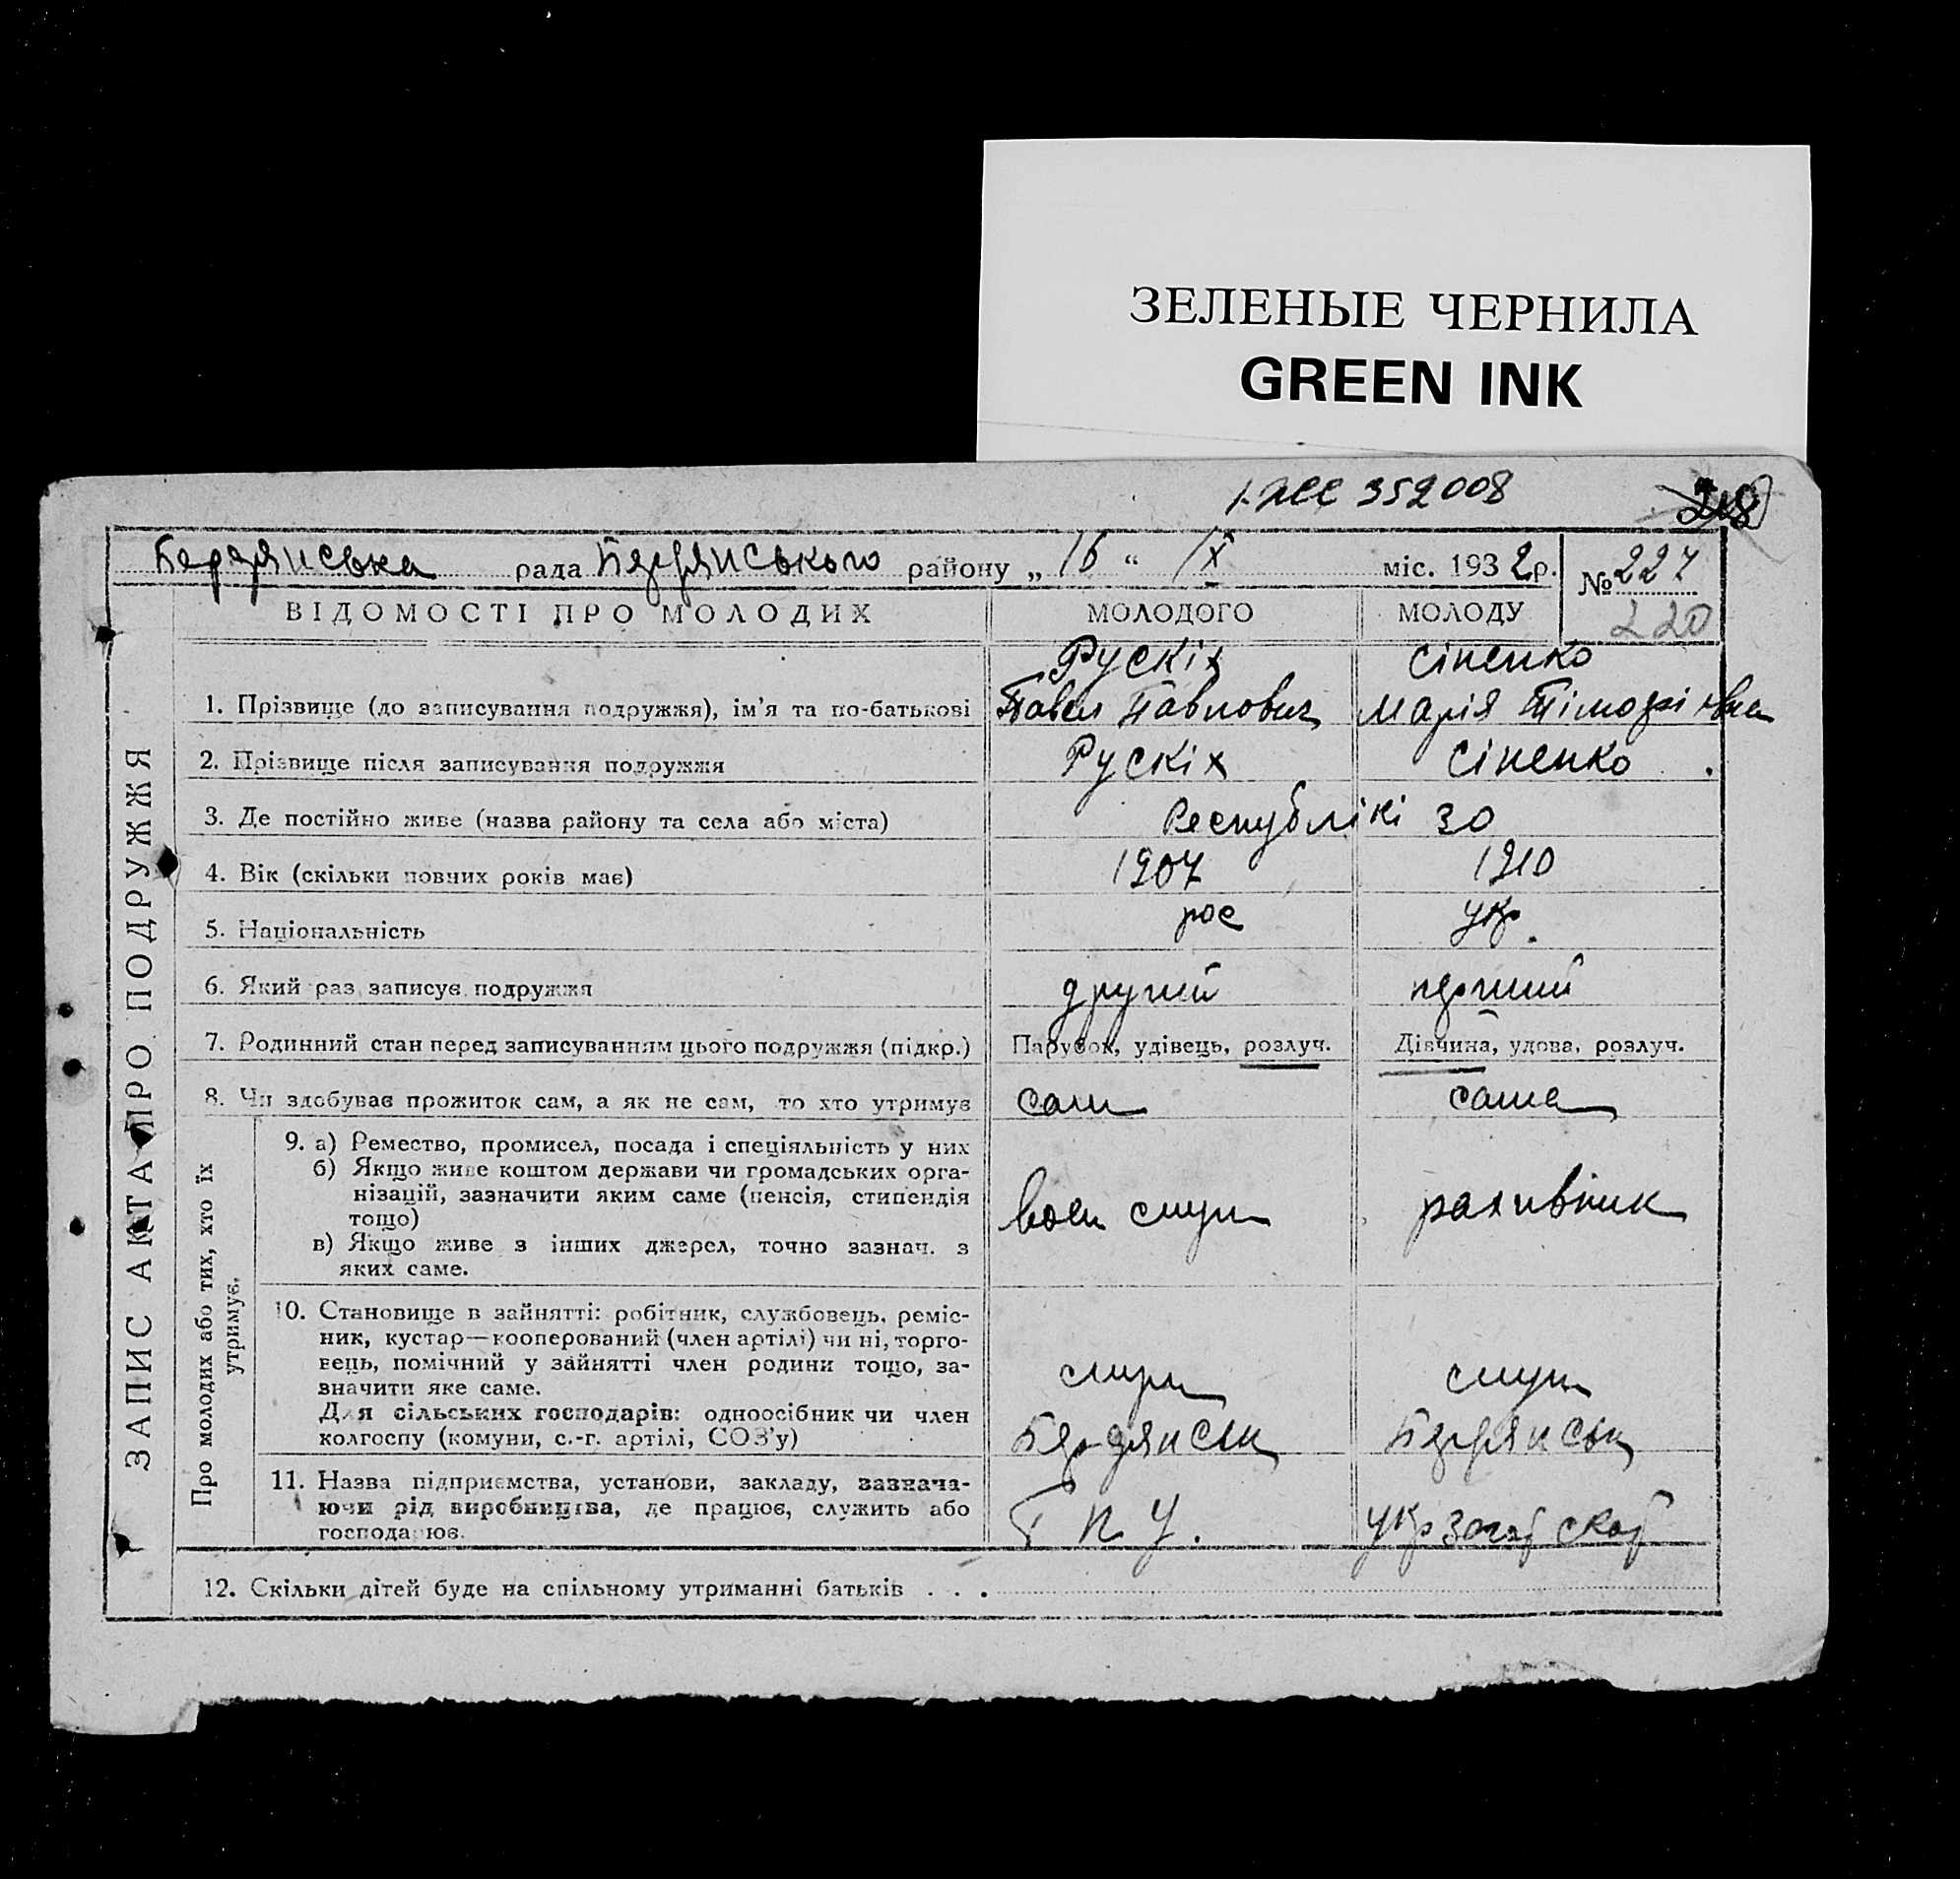 ЗЕЛЕНЫЕ ЧЕРНИЛА
GREEN INK
352008
Бердянська рада Бердянського району „ 16 “ IX міс. 1932 р. № 227
220
ВІДОМОСТІ ПРО МОЛОДИХ МОЛОДОГО МОЛОДУ
Рускіх Сіненко
1. Прізвище (до записування подружжя), ім'я та по-батькові Павел Павлович Марія Тімофіївна
2. Прізвище після записування подружжя Рускіх Сіненко
3. Де постійно живе (назва району та села або міста) Республікі 30
4. Вік (скільки повних років має) 1907 1910
5. Національність рос укр.
6. Який раз записує подружжя другий перший
7. Родинний стан перед записуванням цього подружжя (підкр.) Парубок, удівець, розлуч. Дівчина, удова, розлуч.
8. Чи здобуває прожиток сам, а як не сам, то хто утримує сам сама
9. а) Ремество, промисел, посада і спеціяльність у них
б) Якщо живе коштом держави чи громадських орга-
нізацій, зазначити яким саме (пенсія, стипендія
тощо) воен служ рахивник
в) Якщо живе з інших джерел, точно зазнач. з
яких саме.
10. Становище в зайнятті: робітник, службовець, реміс-
ник, кустар—кооперований (член артілі) чи ні, торго-
вець, помічний у зайнятті член родини тощо, за-
значити яке саме. служ служ
Для сільських господарів: одноосібник чи член
колгоспу (комуни, с.-г. артілі, СОЗ'у) Бердянськ Бердянськ
11. Назва підприємства, установи, закладу, зазнача-
ючи рід виробництва, де працює, служить або Г П У.
господарює.
12. Скільки дітей буде на спільному утриманні батьків . . .
ЗАПИС АКТА ПРО ПОДРУЖЖЯ
Про молодих або тих, хто їх
утримує.